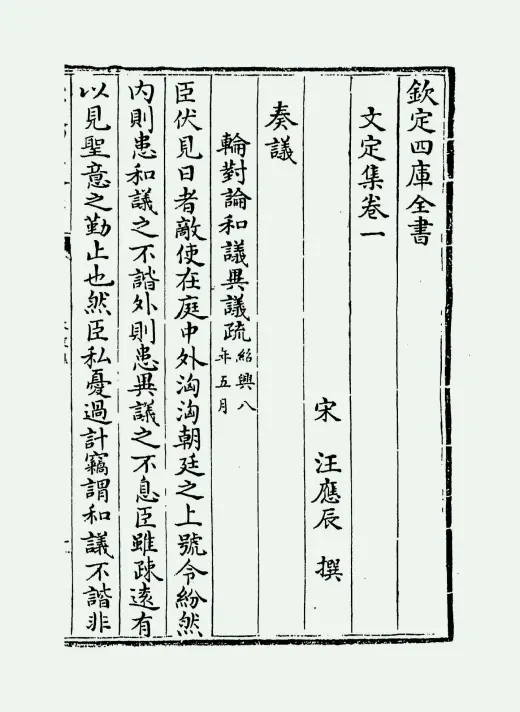 欽定四庫全書
文定集卷一
宋 汪應辰 撰
奏議
輪對論和議異議疏紹興八年五月
臣伏見日者敵使在庭中外洶洶朝廷之上號令紛然
内則患和議之不諧外則患異議之不息臣雖疎逺有
以見聖意之勤止也然臣私憂過計竊謂和議不諧非